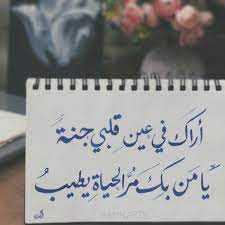 أراكَ في عينِ قلبي جنةً
يا من بكَ مرُّ الحياةِ يطيبُ